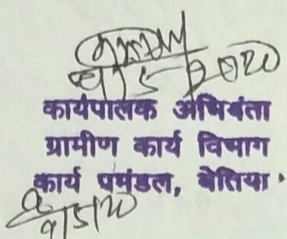 कार्यपालक अभियंता
ग्रामीण कार्य विभाग
कार्य प्रमंडल, बेतिया
9/5/20